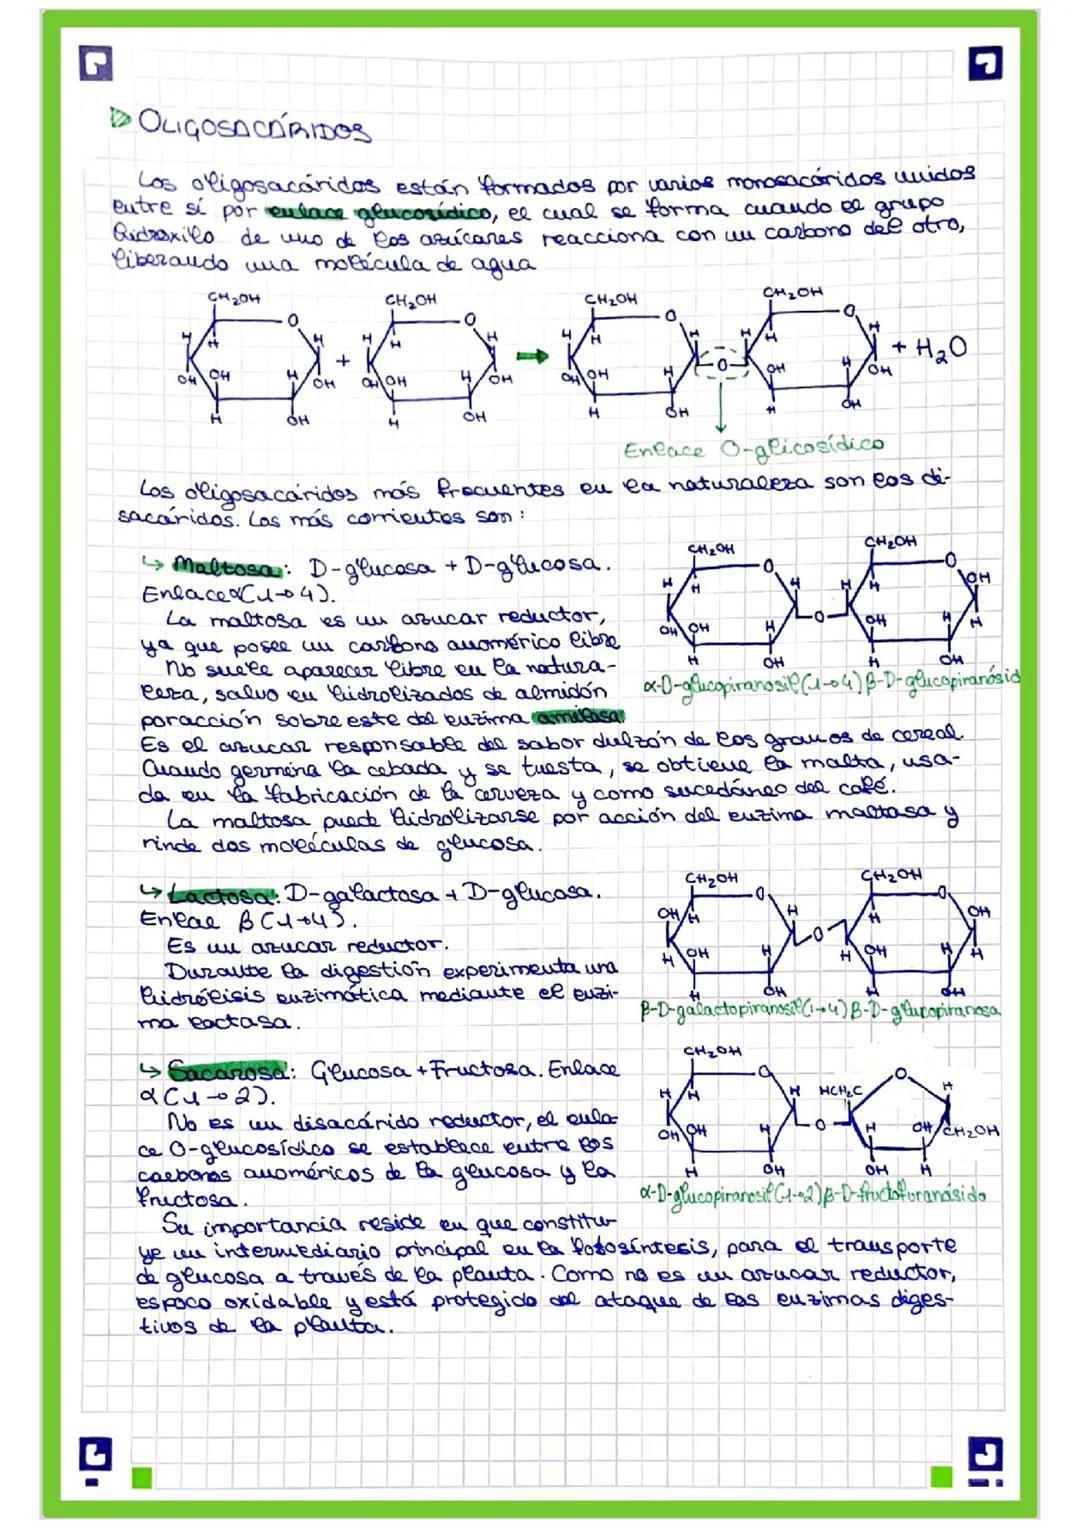 OLIGOSACÁRIDOS
Los oligosacáridos están formados por varios monosacáridos unidos
entre sí por enlace glucosídico, el cual se forma cuando el grupo
hidroxilo de uno de los azúcares reacciona con un carbono del otro,
liberando una molécula de agua
CH₂OH CH₂OH CH₂OH CH₂OH
O O O O
H H H H H H H H
H OH H + OH H H OH H O OH H + H₂O
OH OH OH OH OH OH
H OH H OH H OH H OH
Enlace O-glicosídico
Los oligosacáridos más frecuentes en la naturaleza son los di-
sacáridos. Los más corrientes son:
↳ Maltosa: D-glucosa + D-glucosa.
Enlace α(1→4).
La maltosa es un azucar reductor,
ya que posee un carbono anomérico libre
No suele aparecer libre en la natura-
leza, salvo en hidrolizados de almidón
por acción sobre este del enzima amilasa
CH₂OH CH₂OH
O O
H H H H H OH
OH OH H O OH H H
H OH H OH
α-D-glucopiranosil(1→4)β-D-glucopiranósid
Es el azucar responsable del sabor dulzón de los granos de cereal.
Cuando germina la cebada y se tuesta, se obtiene la malta, usa-
da en la fabricación de la cerveza y como sucedáneo del café.
La maltosa puede hidrolizarse por acción del enzima maltasa y
rinde dos moléculas de glucosa.
↳ Lactosa: D-galactosa + D-glucosa.
Enlae β(1→4).
Es un azucar reductor.
Durante la digestión experimenta una
hidrólisis enzimática mediante el enzi-
ma lactasa.
CH₂OH CH₂OH
O O
OH H H H OH
H OH H O H OH H H
H OH H OH
β-D-galactopiranosil(1→4)β-D-glucopiranosa
↳ Sacarosa: Glucosa + Fructosa. Enlace
α(1→2).
No es un disacárido reductor, el enla-
ce O-glucosídico se establece entre los
carbonos anoméricos de la glucosa y la
fructosa.
CH₂OH
O O
H H H HCH₂C H
OH OH H O H OH CH₂OH
H OH OH H
α-D-glucopiranosil(1→2)β-D-fructofuranósido
Su importancia reside en que constitu-
ye un intermediario principal en la fotosíntesis, para el transporte
de glucosa a través de la planta. Como no es un azucar reductor,
es poco oxidable y está protegido del ataque de los enzimas diges-
tivos de la planta.